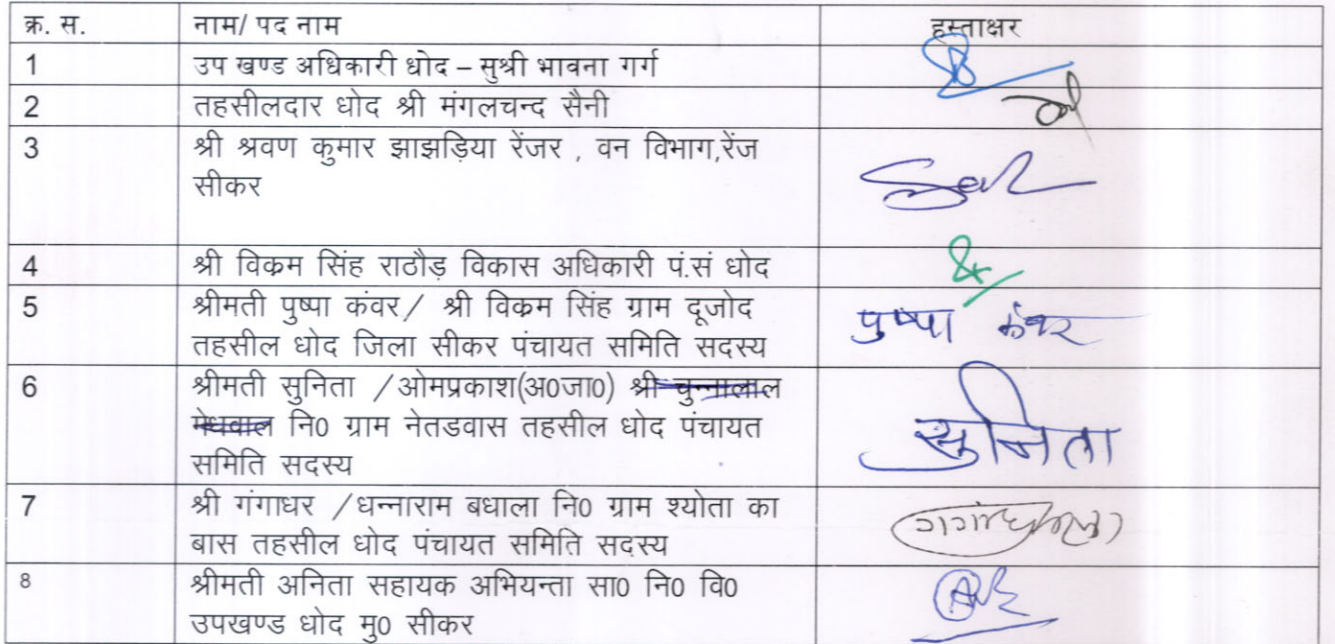 क्र. स. नाम/ पद नाम हस्ताक्षर
1 उप खण्ड अधिकारी धोद – सुश्री भावना गर्ग
2 तहसीलदार धोद श्री मंगलचन्द सैनी
3 श्री श्रवण कुमार झाझड़िया रेंजर , वन विभाग,रेंज
सीकर
4 श्री विक्रम सिंह राठौड़ विकास अधिकारी पं.सं धोद
5 श्रीमती पुष्पा कंवर/ श्री विक्रम सिंह ग्राम दूजोद पुष्पा कंवर
तहसील धोद जिला सीकर पंचायत समिति सदस्य
6 श्रीमती सुनिता /ओमप्रकाश(अ0जा0) श्री चुन्नालाल
मेघवाल नि0 ग्राम नेतडवास तहसील धोद पंचायत सुनिता
समिति सदस्य
7 श्री गंगाधर /धन्नाराम बधाला नि0 ग्राम श्योता का
बास तहसील धोद पंचायत समिति सदस्य
8 श्रीमती अनिता सहायक अभियन्ता सा0 नि0 वि0
उपखण्ड धोद मु0 सीकर